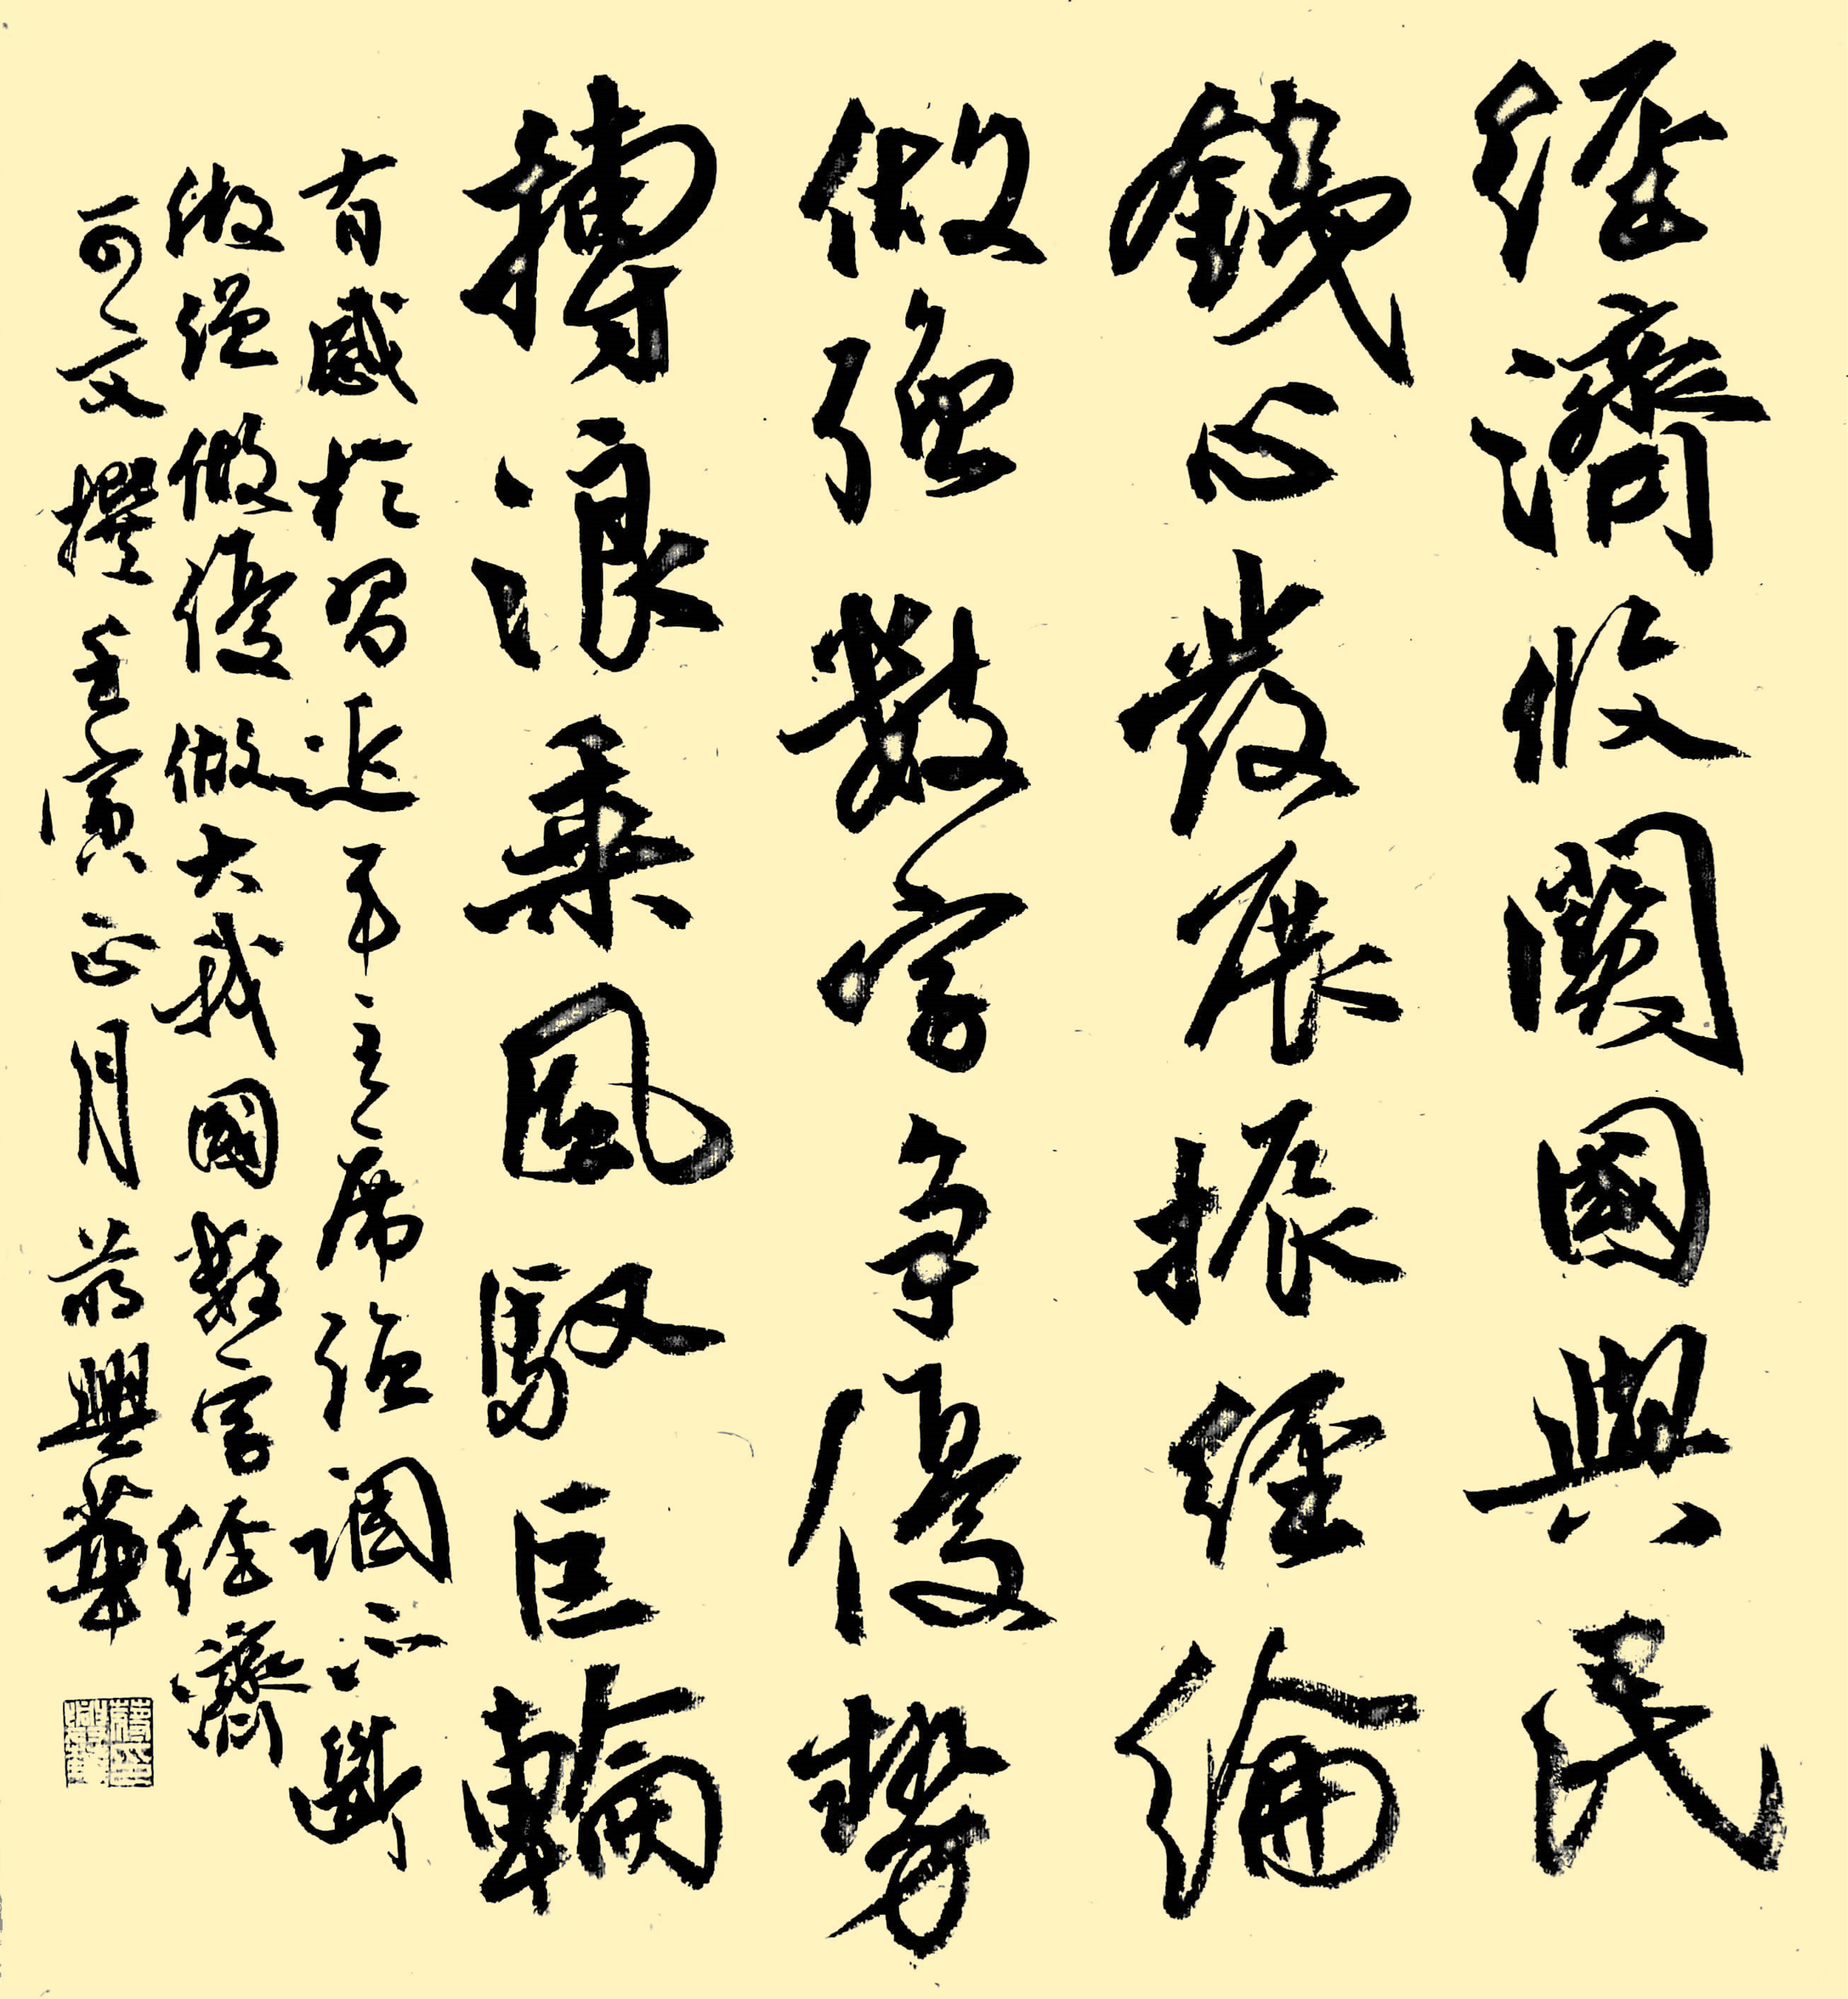 經濟收關國與民
鐵心發展振經綸
做强數字争優勢
搏浪乘風馭巨輪
有感於習近平主席强調不斷
做强做優做大我國數字經濟
可文撰 壬寅正月 蔣興華